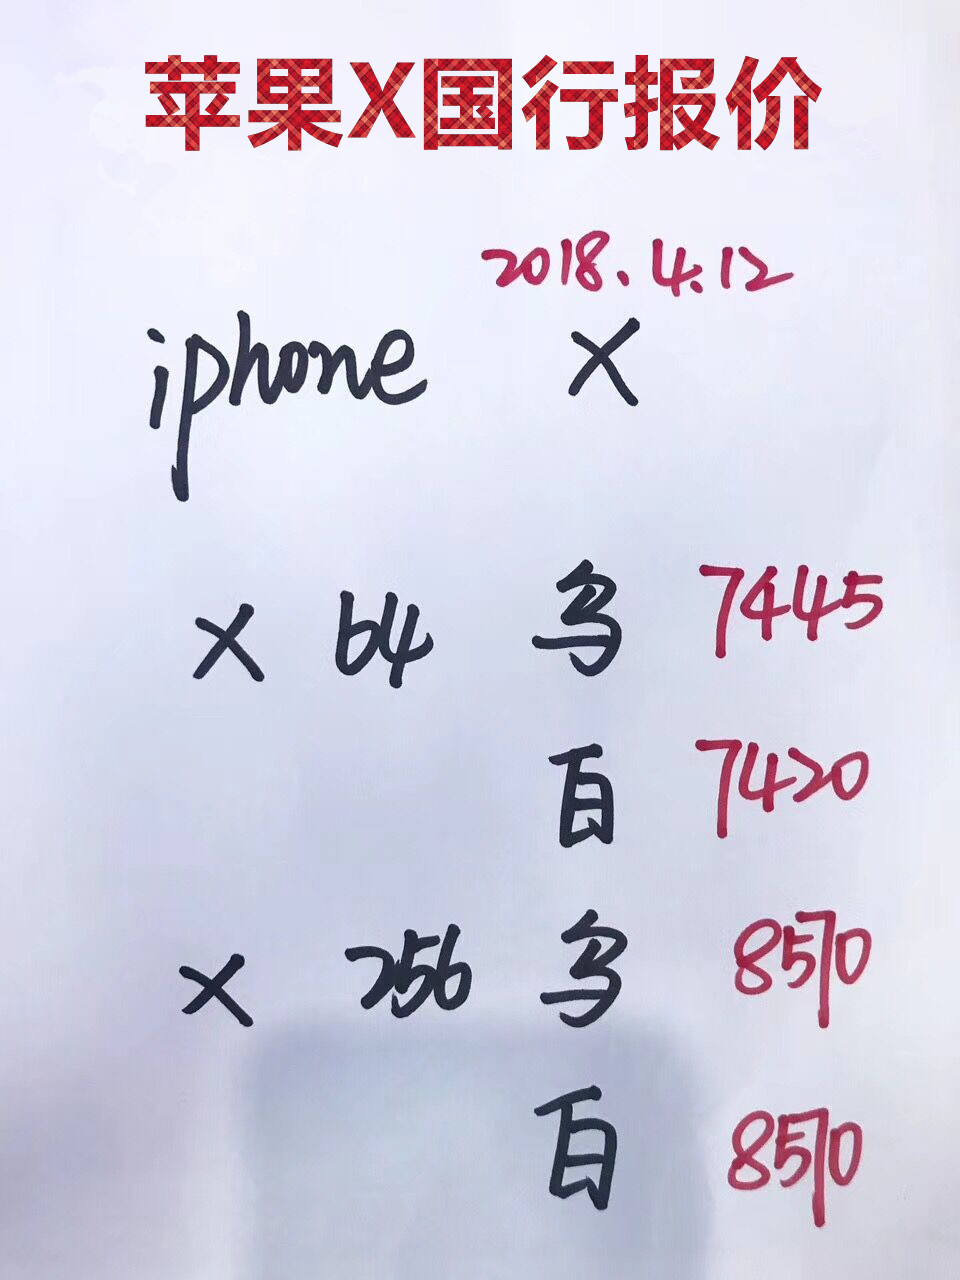 苹果X国行报价
2018.4.12
iphone X
X 64 乌 7445
百 7420
X 256 乌 8570
百 8570